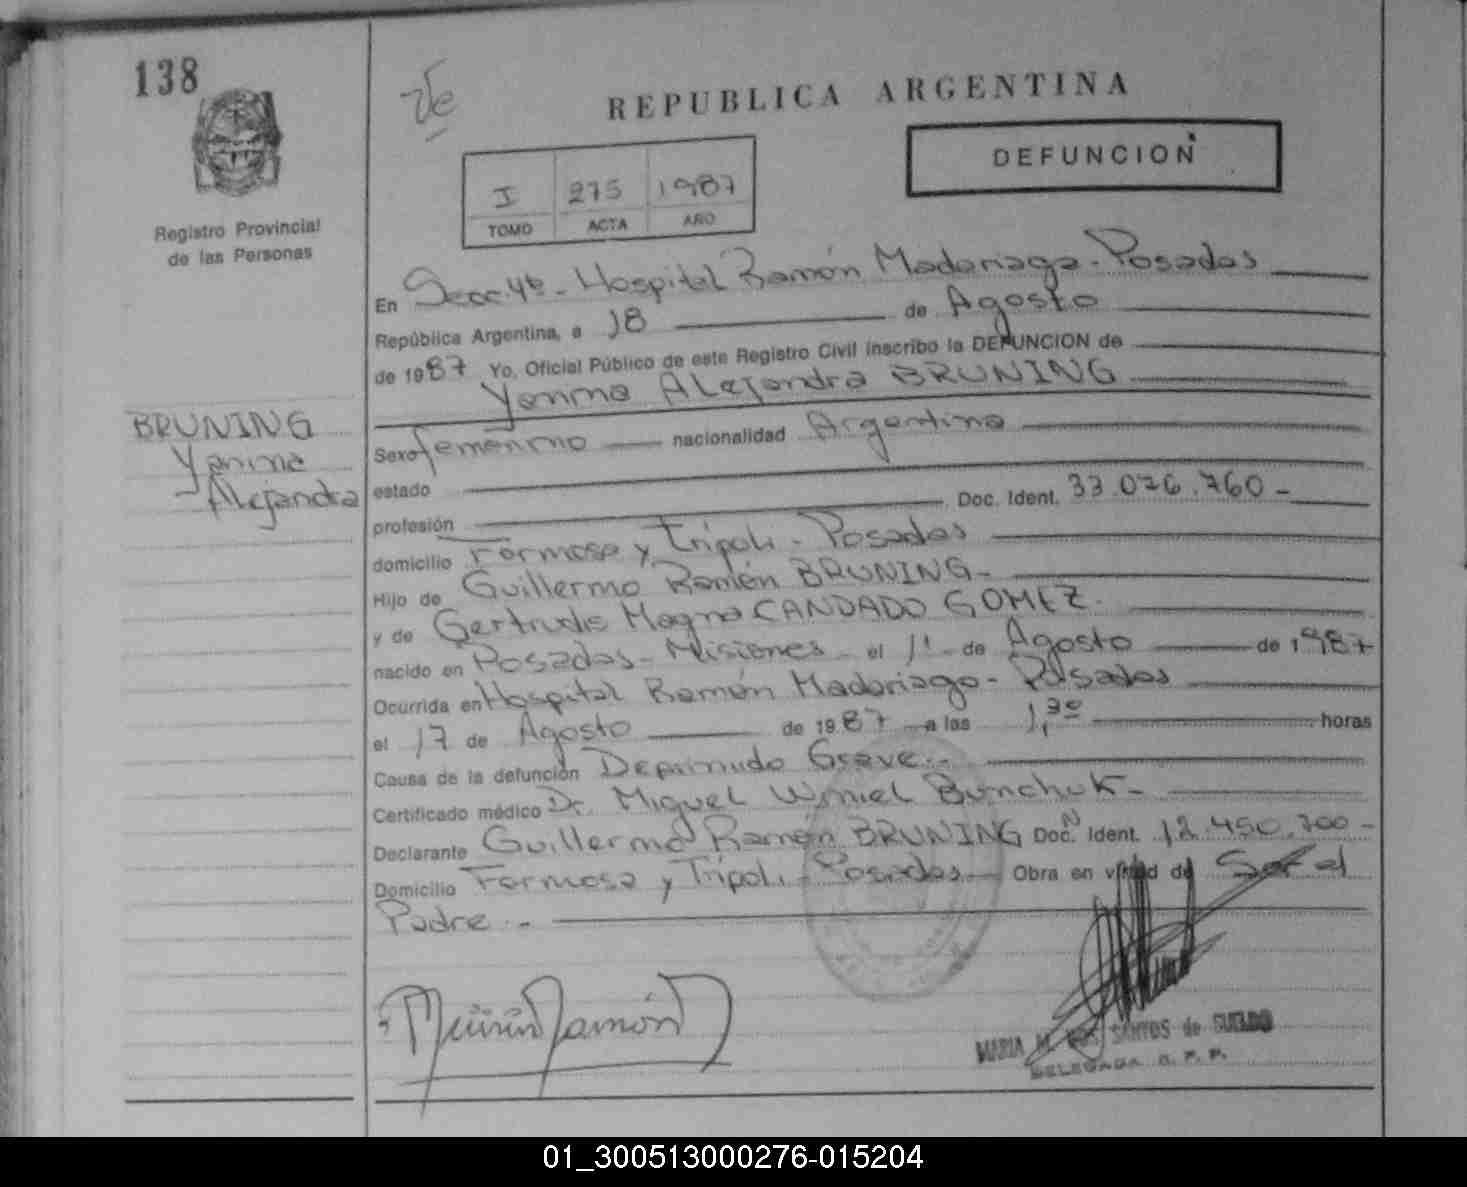 138
REPUBLICA ARGENTINA
DEFUNCION
I 275 1987
TOMO ACTA AÑO
Registro Provincial
de las Personas
En Secc. 4ta - Hospital Ramón Madariaga - Posadas
República Argentina, a 18 de Agosto
de 1987 Yo, Oficial Público de este Registro Civil inscribo la DEFUNCION de
Yanina Alejandra BRUNING
BRUNING
Yanina
Alejandra
Sexo femenino nacionalidad Argentina
estado
profesión Doc. Ident. 33.076.760 -
domicilio Formosa y Tripoli - Posadas
Hijo de Guillermo Ramón BRUNING -
y de Gertrudis Magna CANDADO GOMEZ.
nacido en Posadas - Misiones - el 11 - de Agosto de 1987
Ocurrida en Hospital Ramón Madariaga - Posadas
el 17 de Agosto de 1987 a las 1,30 horas
Causa de la defunción Deprimido Grave.-
Certificado médico Dr. Miguel Bunchuk -
Declarante Guillermo Ramón BRUNING Doc. Ident. 12.450.700 -
Domicilio Formosa y Tripoli - Posadas - Obra en virtud de Ser el
Padre.-
MARIA M. DOS SANTOS de SUELDO
DELEGADA R. P. P.
01_300513000276-015204